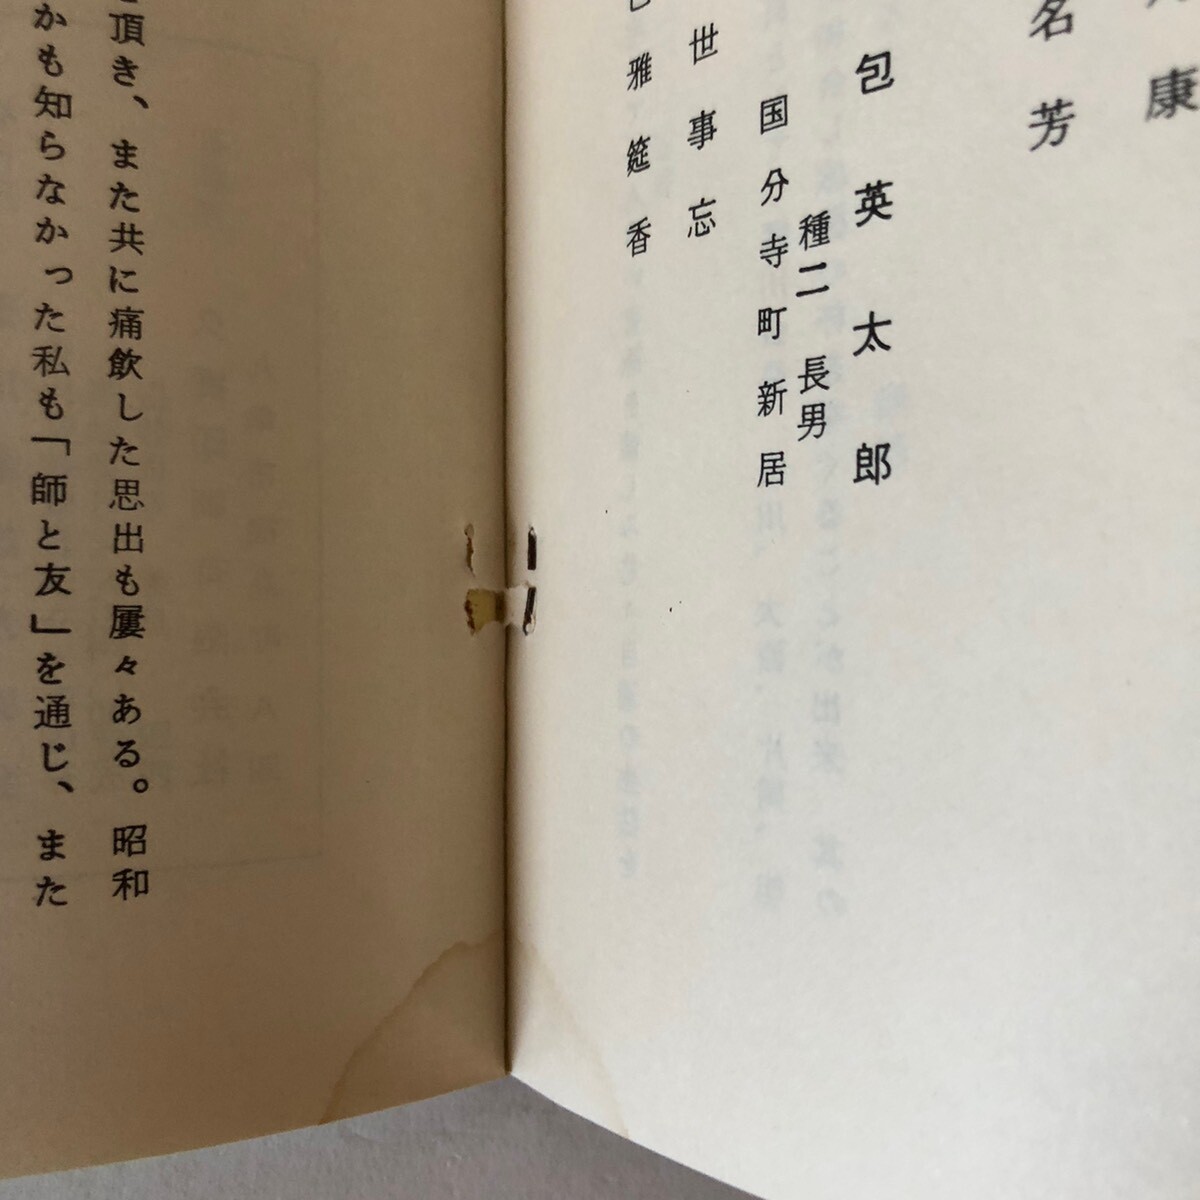 康
名芳
包英太郎
種二 長男
国分寺町新居
世事忘
雅筵香
頂き、また共に痛飲した思出も屢々ある。昭和
かも知らなかった私も「師と友」を通じ、また